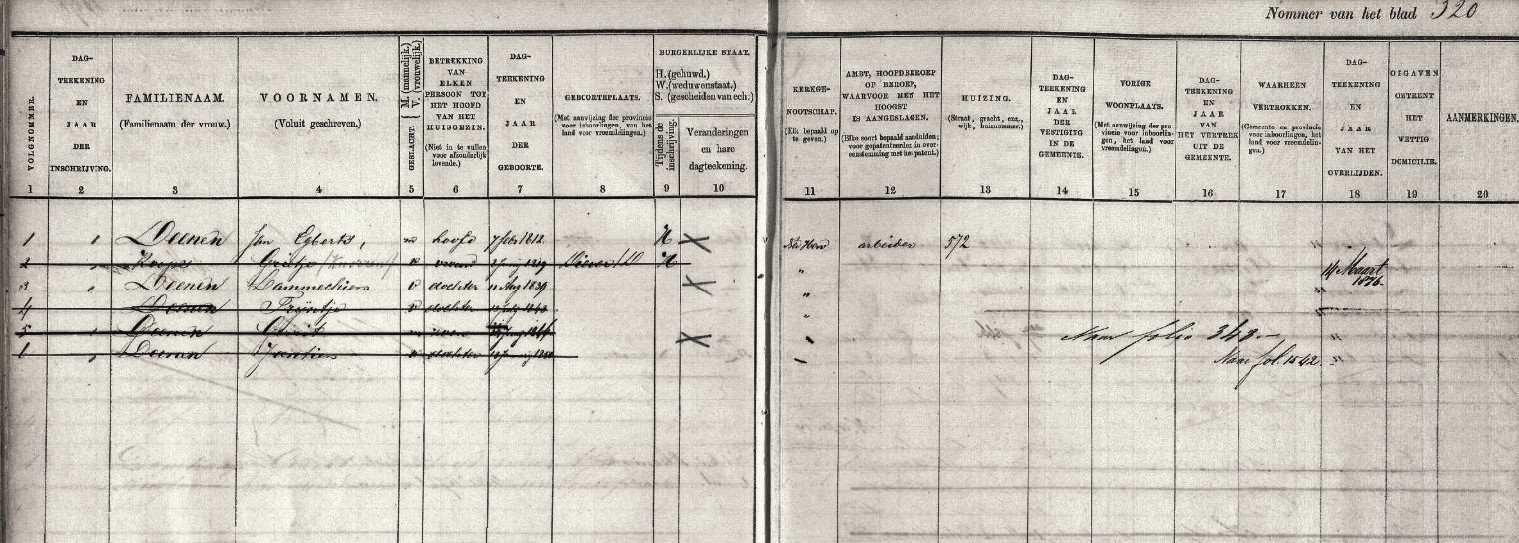 Nommer van het blad 320
VOLGNOMMER.
1
DAG-
TEEKENING
EN
JAAR
DER
INSCHRIJVING.
2
FAMILIENAAM.
(Familienaam der vrouw.)
3
VOORNAMEN.
(Voluit geschreven.)
4
GESLACHT. { M. (mannelijk.) V. (vrouwelijk.)
5
BETREKKING
VAN
ELKEN
PERSOON TOT
HET HOOFD
VAN HET
HUISGEZIN.
(Niet in te vullen
voor afzonderlijk
levende.)
6
DAG-
TEEKENING
EN
JAAR
DER
GEBOORTE.
7
GEBOORTEPLAATS.
(Met aanwijzing der provincie
voor inboorlingen, van het
land voor vreemdelingen.)
8
BURGERLIJKE STAAT.
H. (gehuwd.)
W. (weduwenstaat.)
S. (gescheiden van ech.)
Tijdens de
inschrijving.
9
Veranderingen
en hare
dagteekening.
10
KERKGE-
NOOTSCHAP.
(Elk bepaald op
te geven.)
11
AMBT, HOOFDBEROEP
OF BEROEP,
WAARVOOR MEN HET
HOOGST
IS AANGESLAGEN.
(Elke soort bepaald aanduiden;
voor gepatenteerden in over-
eenstemming met het patent.)
12
HUIZING.
(Straat, gracht, enz.,
wijk, huisnummer.)
13
DAG-
TEEKENING
EN
JAAR
DER
VESTIGING
IN DE
GEMEENTE.
14
VORIGE
WOONPLAATS.
(Met aanwijzing der pro-
vincie voor inboorlin-
gen, het land voor
vreemdelingen.)
15
DAG-
TEEKENING
EN
JAAR
VAN
HET VERTREK
UIT DE
GEMEENTE.
16
WAARHEEN
VERTROKKEN.
(Gemeente en provincie
voor inboorlingen, het
land voor vreemdelin-
gen.)
17
DAG-
TEEKENING
EN
JAAR
VAN HET
OVERLIJDEN.
18
OPGAVEN
OMTRENT
HET
WETTIG
DOMICILIE.
19
AANMERKINGEN.
20
1 " Deenen Jan Egberts, m hoofd 7 febr 1812 H X Ned Herv arbeider 572
2 " Koops Geertje v vrouw Diever H " 14 Maart
1876.
3 " Deenen Lammechien v dochter 11 Aug 1839 X " "
4 Deenen Trijntje v dochter "
5 " Deenen X " Naar folio 343.- "
1 " Deenen Jantien v dochter " Naar fol. 1542. "